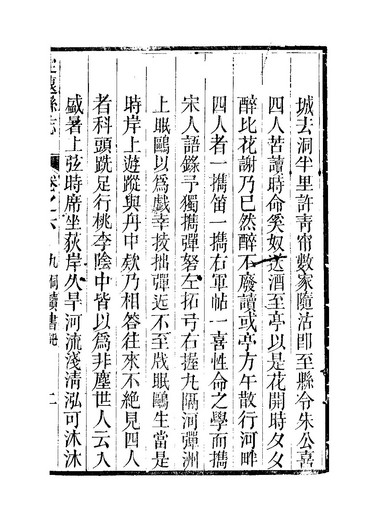 城去洞半里許靑帘數家隨沽卽至縣令朱公喜
四人苦讀時命奚奴送酒至亭以是花開時夕夕
醉比花謝乃已然醉不廢讀或亭方午散行河畔
四人者一攜笛一攜右軍帖一喜性命之學而攜
宋人語錄予獨攜彈弩左拓弓右握九隔河彈洲
上眠鷗以爲戲幸技拙彈迄不至戕眠鷗生當是
時岸上遊蹤與舟中欸乃相答往來不絶見四人
者科頭跣足行桃李陰中皆以爲非塵世人云入
盛暑上弦時席坐荻岸久旱河流淺淸泓可沐沐
定遠縣志
卷之六
九 讀書
二